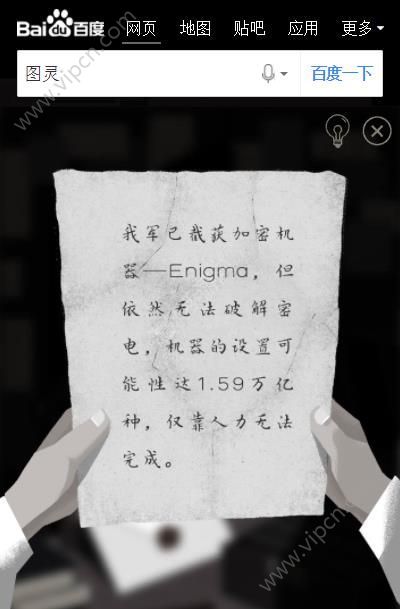 Bai百度 网页 地图 贴吧 应用 更多
图灵 百度一下
我军已截获加密机
器—Enigma，但
依然无法破解密
电，机器的设置可
能性达1.59万亿
种，仅靠人力无法
完成。
www.vipcn.com
www.vipcn.com
www.vipcn.com